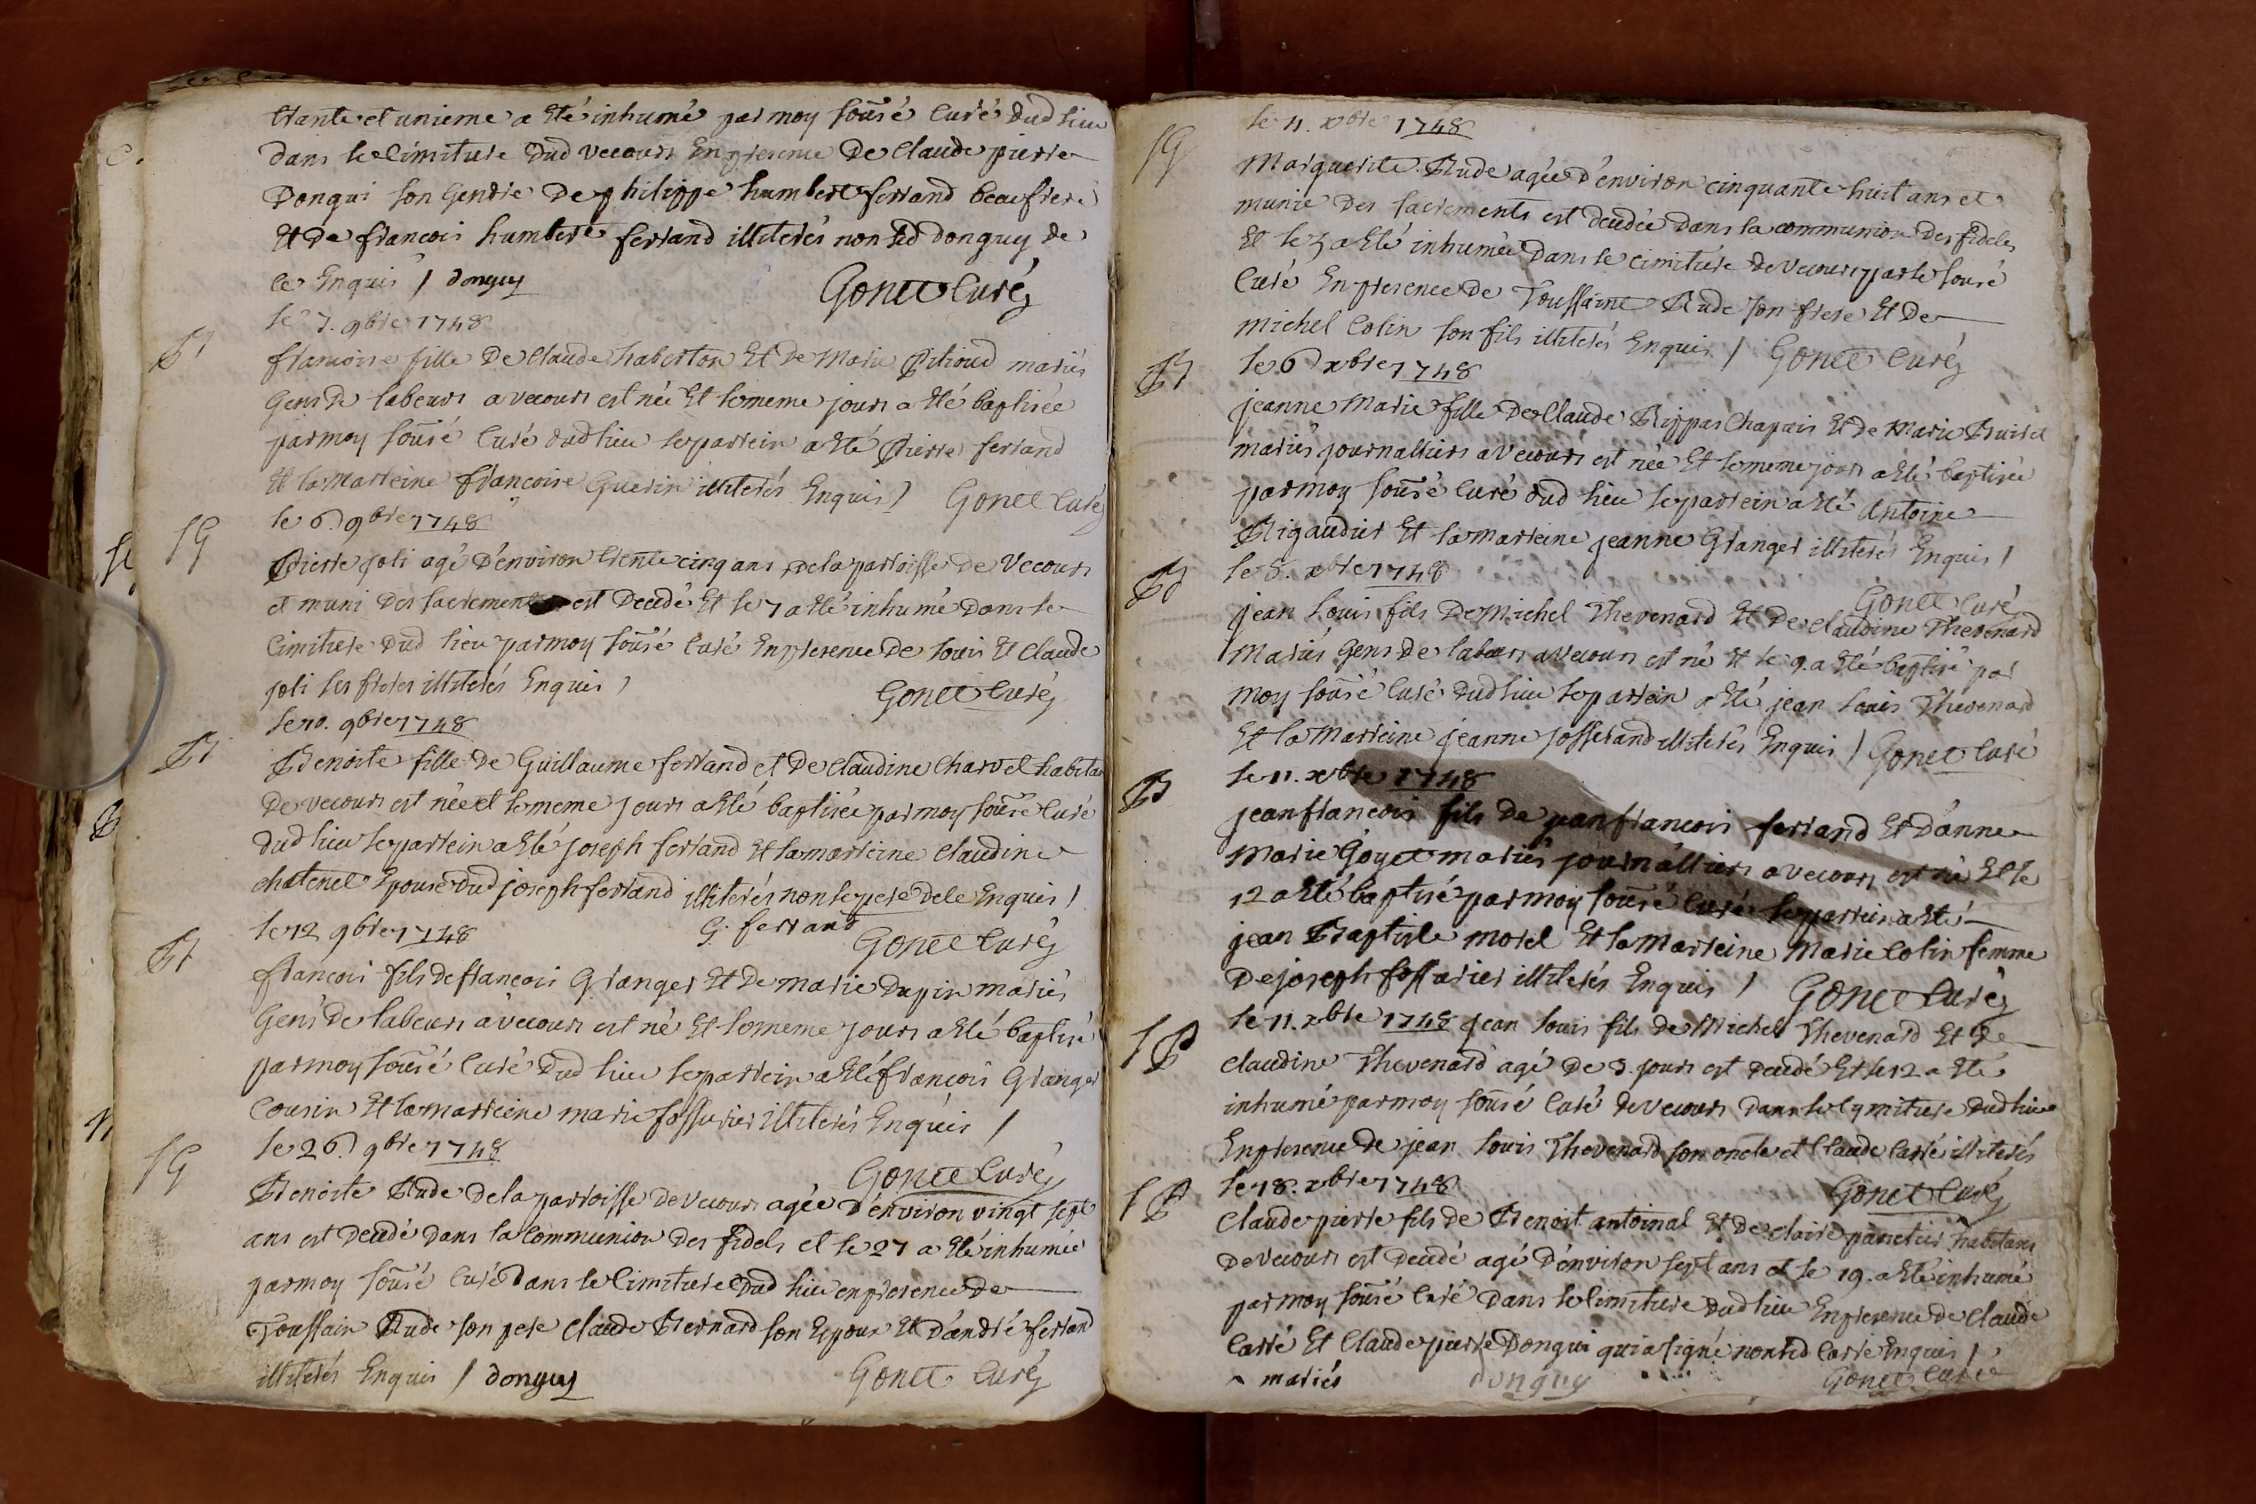 trante et unieme a Eté inhumé par moy soussé Curé dud lieu
dans le Cimiture dud vecours En presence De Claude pierre
Donqui son Gendre De philippe humbert ferrand beaufrere
Et De francois humbert ferrand illiterés non led donguy de
ce Enquis / donguy Gonet Curé
le 3. 9bre 1748
B
francoise fille De Claude haberton Et de Marie mariés
Gens de labeurs a vecours est née Et le meme jours a Eté baptisée
par moy soussé Curé dud lieu le parrein a Eté Pierre ferrand
Et la Marreine francoise Guerin illiterés Enquis / Gonet Curé
le 6. 9bre 1748
SG
Pierre joli agé D'environ trente cinq ans de la parroisse De Vecours
et muni Des sacrements est Decedé Et le 7 a Eté inhumé Dans le
Cimiture Dud lieu par moy soussé Curé En presence De Louis Et Claude
joli ses freres illiterés Enquis / Gonet Curé
le 10. 9bre 1748
B
Benoite fille de Guillaume ferrand et De Claudine Charvel habitans
De vecours est née et le meme jours a Eté baptisée par moy soussé Curé
dud lieu le parrein a Eté joseph ferrand Et la marreine Claudine
chatenet Epouse dud joseph ferrand illiterés non le pere de le Enquis /
le 12 9bre 1748 G. ferrand Gonet Curé
B
francois fils de francois Granger Et De marie Dupin mariés
Gens De labeurs a vecours est né Et le meme jours a Eté baptisé
par moy soussé Curé Dud lieu le parrein a Eté francois Granger
Cousin Et la marreine marie fossurier illiterés Enquis /
le 26. 9bre 1748 Gonet Curé
SG
Benoite Rude De la parroisse de Vecours agée D'environ vingt sept
ans est Decedé Dans la Communion Des fidels et le 27 a Eté inhumée
par moy soussé Curé Dans le Cimiture Dud lieu en presence de
Toussain Rude son pere Claude Bernard son Epoux Et D'andré ferrand
illiterés Enquis / donguy Gonet Curé
le 11. xbre 1748
SG
Marguerite Rude agée D'environ cinquante huit ans et
munie Des sacrements est decedée Dans la communion Des fideles
Et le 3 a Eté inhumée Dans le cimiture de Vecours par le soussé
Curé En presence De Toussaint Rude son frere Et De
michel Colin son fils illiterés Enquis / Gonet Curé
B
le 6 xbre 1748
jeanne Marie fille De Claude Rippas Chapais Et de Marie
mariés journalliers a Vecours est née Et le meme jour a Eté baptisée
par moy soussé Curé dud lieu le parrein a Eté Antoine
Rigaudier Et la marreine jeanne Granger illiterés Enquis /
B
le 8. xbre 1748 Gonet Curé
jean Louis fils De Michel Thevenard Et De Claudine Thevenard
Mariés Gens De labeurs a vecours est né Et le 9. a Eté baptisé par
moy soussé Curé dud lieu le parrein a Eté jean Louis Thevenard
Et la Marreine jeanne josserand illiterés Enquis / Gonet Curé
B
le 11. xbre 1748
jean francois fils De jean francois ferrand Et D'anne
Marie Goyet mariés journalliers a vecours est né Et le
12 a Eté baptisé par moy soussé Curé le parrein a Eté
jean Baptiste morel Et la Marreine Marie Colin femme
De joseph fossarier illiterés Enquis / Gonet Curé
SB
le 11. xbre 1748 jean Louis fils de Michel Thevenard Et De
Claudine Thevenard agé De 3. jours est Decedé Et le 12 a Eté
inhumé par moy soussé Curé de Vecours Dans le Cymiture dud lieu
En presence De jean Louis Thevenard son oncle et Claude Carré illiterés
SB
le 18. xbre 1748 Gonet Curé
Claude pierre fils De Benoit antoinat Et De Claire panetier habitans
De Vecours est Decedé agé D'environ sept ans et le 19. a Eté inhumé
par moy soussé Curé Dans le Cimiture dud lieu En presence De Claude
Carré Et Claude pierre Donqui qui a signé non led Carré Enquis /
^ mariés donguy Gonet Curé